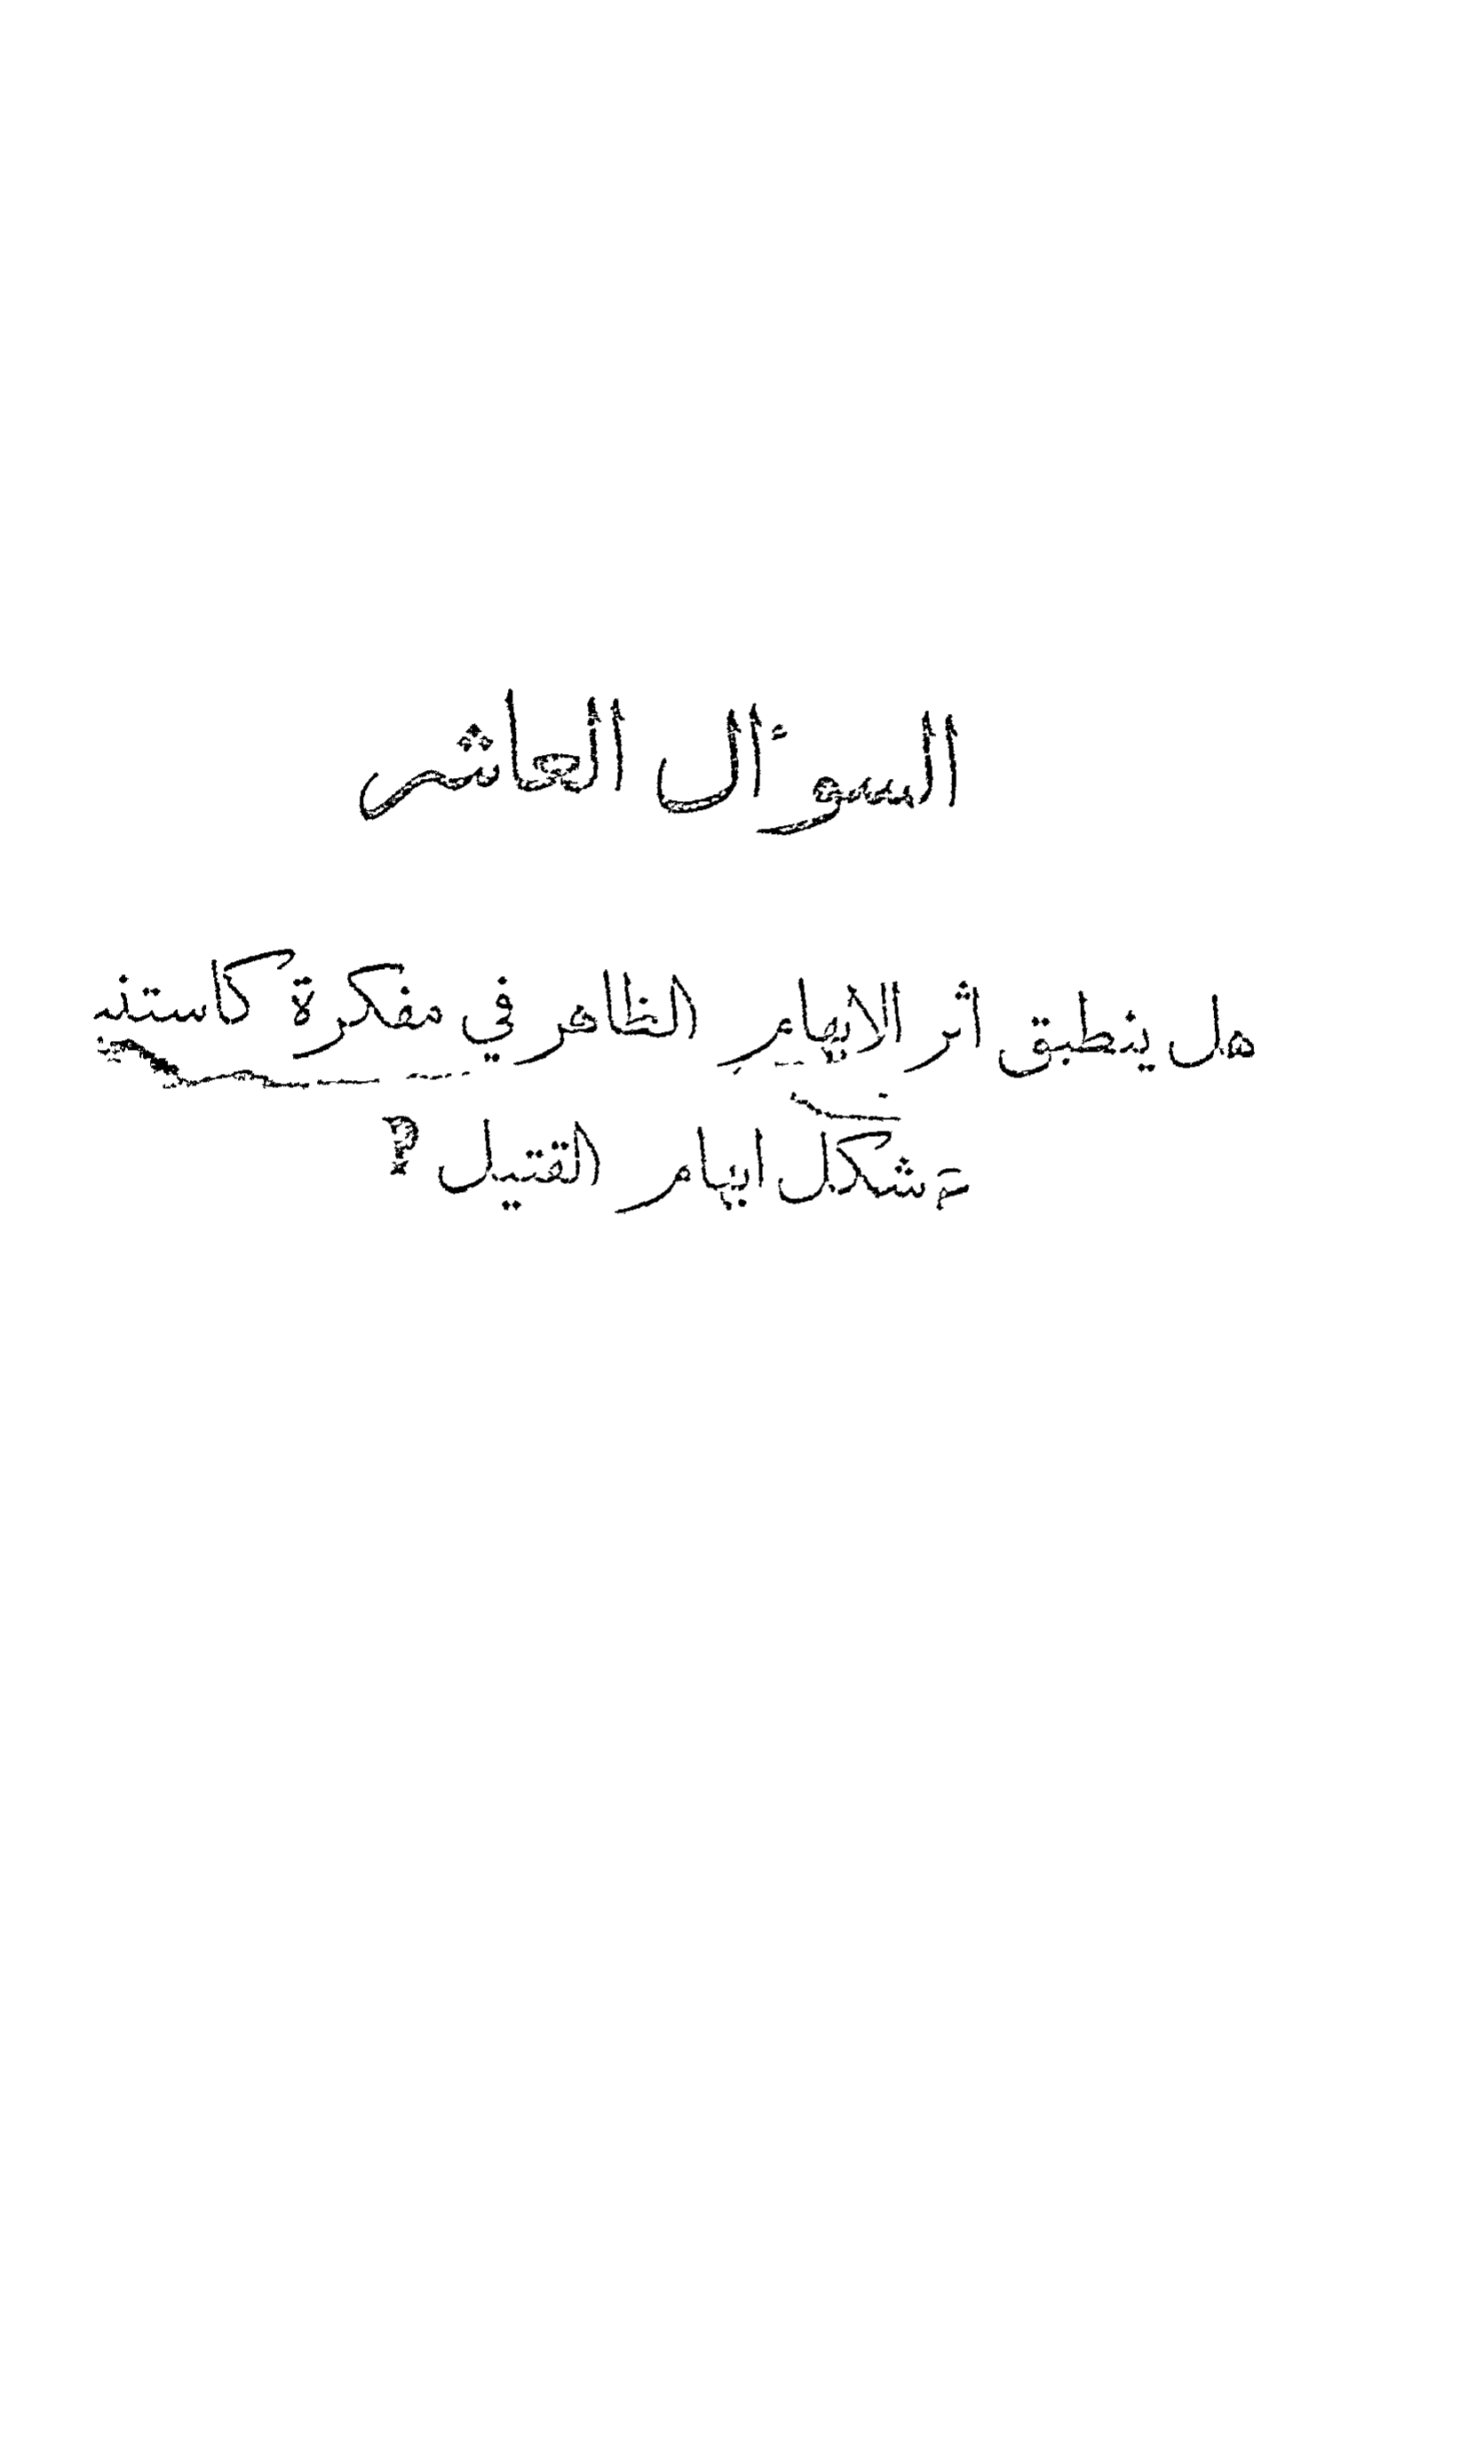 السؤال العاشر
هل ينطبق أثر الابهام الظاهر في مفكرة
شكل ابهام القتيل ؟